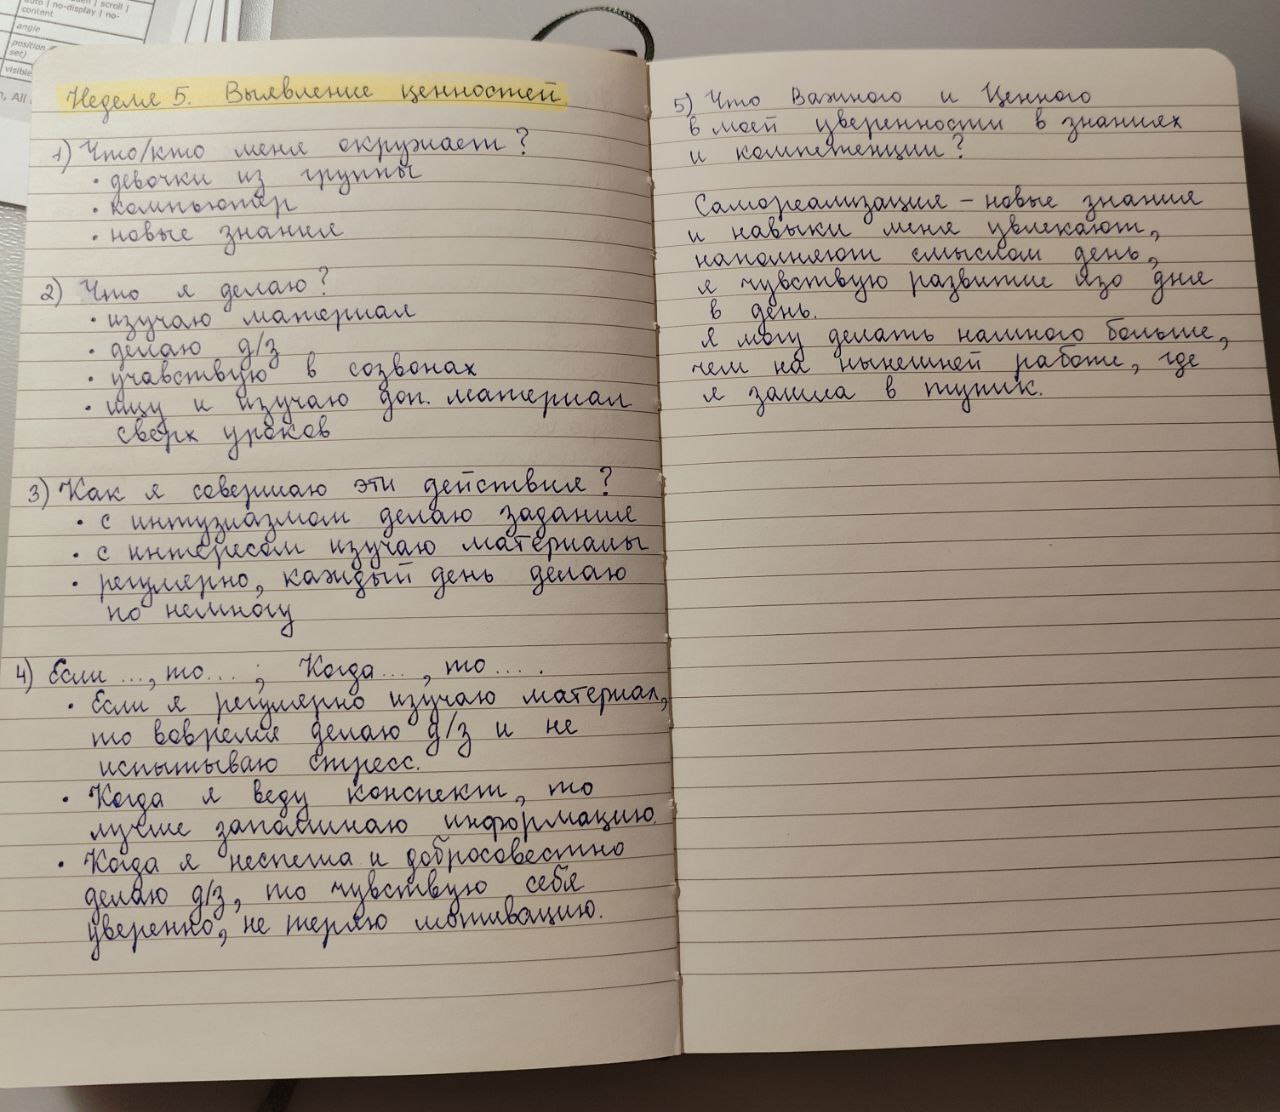 auto | no-display | no-
content
angle
position
set)
visible
, All
Неделя 5. Выявление ценностей
1) Что/кто меня окружает?
• девочки из группы
• компьютер
• новые знания
2) Что я делаю?
• изучаю материал
• делаю д/з
• учавствую в созвонах
• ищу и изучаю доп. материал
сверх уроков
3) Как я совершаю эти действия?
• с интузиазмом делаю задания
• с интересом изучаю материалы
• регулярно, каждый день делаю
по немногу
4) Если ..., то... ; Когда ... , то .... .
• Если я регулярно изучаю материал,
то вовремя делаю д/з и не
испытываю стресс.
• Когда я веду конспект, то
лучше запоминаю информацию.
• Когда я неспеша и добросовестно
делаю д/з, то чувствую себя
уверенно, не теряю мотивацию.
5) Что Важного и Ценного
в моей уверенности в знаниях
и компетенции?
Самореализация – новые знания
и навыки меня увлекают,
наполняют смыслом день,
я чувствую развитие изо дня
в день.
Я могу делать намного больше,
чем на нынешней работе, где
я зашла в тупик.